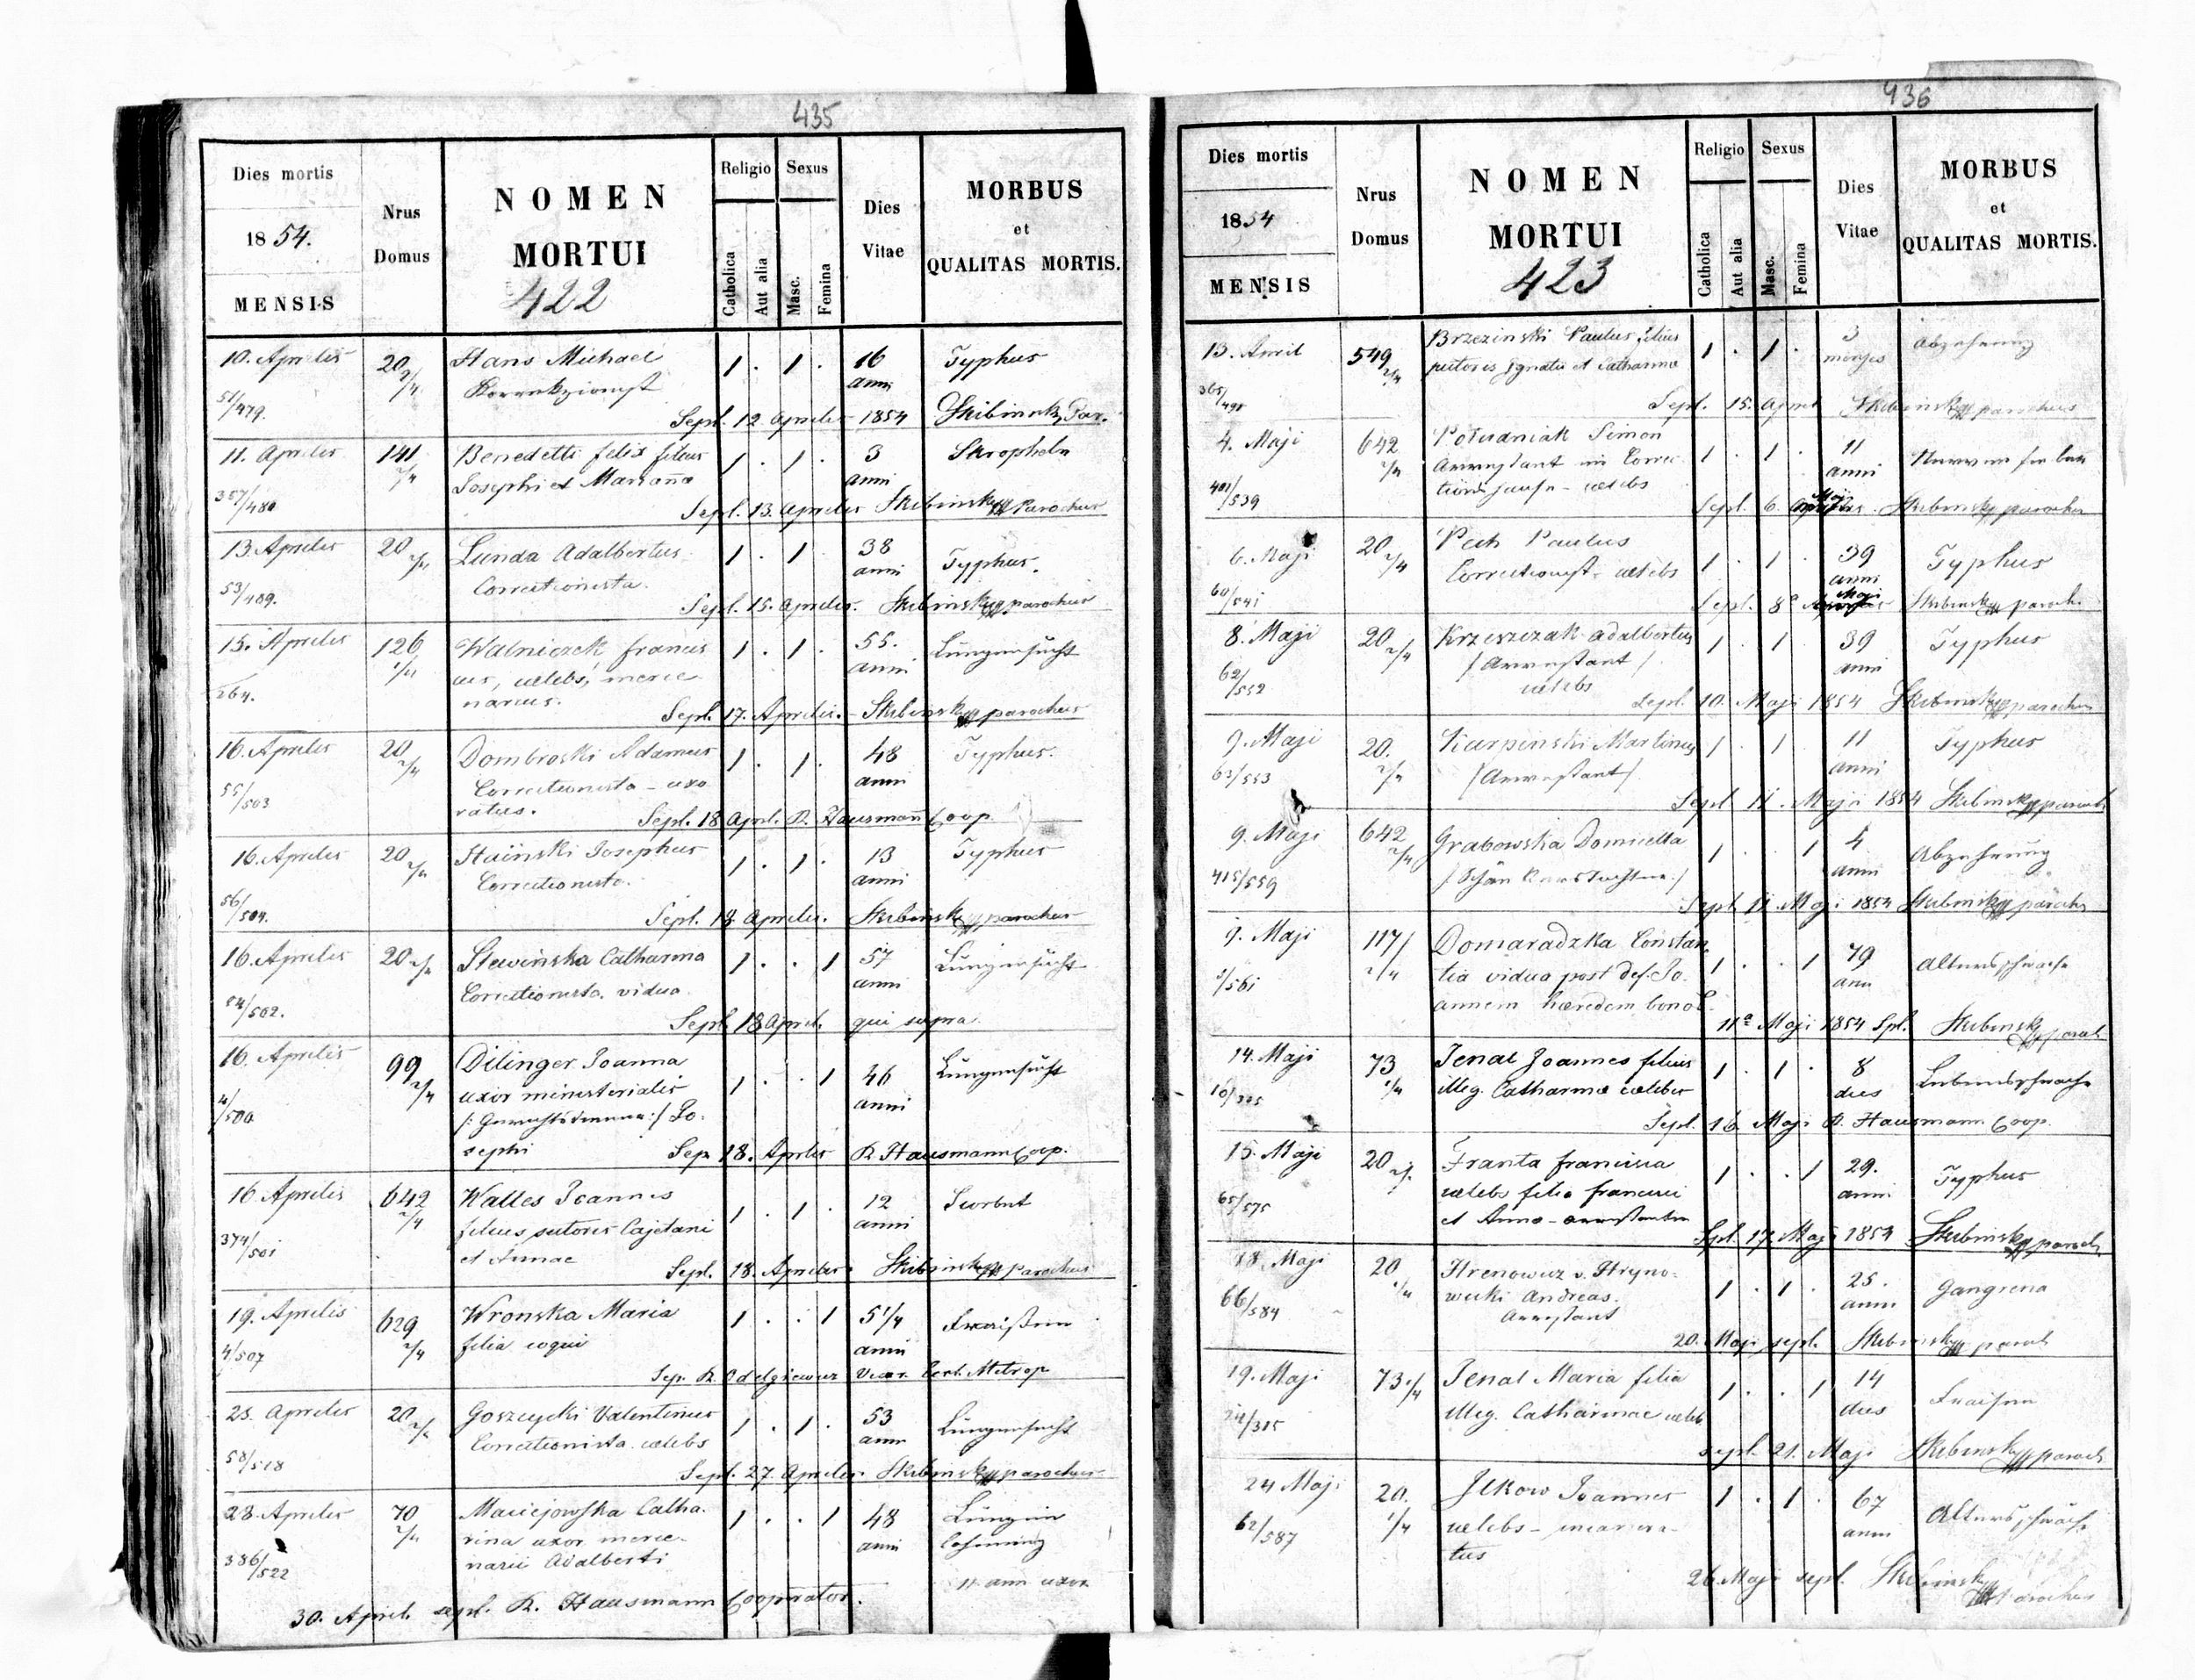 435
Dies mortis
1854.
MENSIS
Nrus
Domus
NOMEN
MORTUI
422
Religio
Sexus
Catholica
Aut alia
Masc.
Femina
Dies
Vitae
MORBUS
et
QUALITAS MORTIS.
10. Aprilis 20 2/4 Hans Michael 1 . 1 . 16 Typhus
anni
51/479.
Sepl. 12 Aprilis 1854 Skibinsky Par.
11. Aprilis 141 2/4 Benedetti Felix filius 1 . 1 . 3 Skropheln
Josephi et Marianna anni
357/480
Sepl. 13. Aprilis Skibinsky Parochus
13. Aprilis 20 2/4 Lunda Adalbertus 1 . 1 . 38 Typhus.
Correctionista. anni
53/489.
Sepl. 15. Aprilis. Skibinsky parochus
15. Aprilis 126 1/4 Walniczek Francis 1 . 1 . 55. Lungensucht
cus, caelebs, merce anni
264. narius.
Sepl. 17. Aprilis. Skibinsky parochus
16. Aprilis 20 2/4 Dombroski Adamus 1 . 1 . 48 Typhus.
Correctionista - uxo anni
55/503 ratus.
Sepl. 18 Aprl. R. Hausmann Coop
16. Aprilis 20 2/4 Hainski Josephus 1 . 1 . 13 Typhus
Correctionista. anni
56/504.
Sepl. 18 Aprilis. Skibinsky parochus
16. Aprilis 20 2/4 Slewinska Catharina 1 . . 1 57 Lungensucht
Correctionista. vidua anni
84/502.
Sepl. 18 April. qui supra
16. Aprilis 99 2/4 Dilinger Joanna 1 . . 1 46 Lungensucht
uxor ministerialis anni
/500 Jo-
sephi Sep. 18. Aprilis R Hausmann Coop.
16 Aprilis 642 2/4 Walles Joannes 1 . 1 . 12 Scorbut
filius sutoris Cajetani anni
374/501 et Annae
Sepl. 18. Aprilis. Skibinsky parochus
19. Aprilis 629 2/4 Wronska Maria 1 . . 1 5 1/4 Fraissen
filia coqui anni
4/507
Sep. R. Odelgiewicz Vicar. Eccl. Metrop
25. Aprilis 20 2/4 Goszycki Valentinus 1 . 1 . 53 Lungensucht
Correctionista caelebs anni
58/518
Sepl. 27. Aprilis. Skibinsky parochus
28. Aprilis 70 2/4 Maciejowska Catha- 1 . . 1 48 Lungen
rina uxor merce- anni Lähmung
386/522 narii Adalberti
30. April. sepl. R. Hausmann Cooperator.
436
Dies mortis
1854
MENSIS
Nrus
Domus
NOMEN
MORTUI
423
Religio
Sexus
Catholica
Aut alia
Masc.
Femina
Dies
Vitae
MORBUS
et
QUALITAS MORTIS.
13. April 549 2/4 Brzezinski Paulus filius 1 . 1 . 3 Abzehrung
Ignatii et Catharina
365/490
Sepl. 15. April Skibinsky parochus
4. Maji 642 2/4 Poludniak Simon 1 . 1 . 11
Arrestant im Correc- anni
401/539 caelebs
Sepl. 6. Maji Skibinsky parochus
6. Maji 20 2/4 Pech Paulus 1 . 1 . 39 Typhus
Correctionist caelebs anni
60/541
Sepl. 8 Maji Skibinsky paroch.
8. Maji 20 2/4 Krzeszczak Adalbertus 1 . 1 39 Typhus
/Arrestant/ anni
62/552 caelebs
Sepl. 10. Maji 1854 Skibinsky parochus
9. Maji 20. 2/4 Karpinski Martinus 1 . 1 11 Typhus
/Arrestant/. anni
63/553
Sepl. 11. Maji 1854 Skibinsky paroch
9. Maji 642 2/4 Grabowska Domicella 1 . . 1 4 Abzehrung
anni
415/559
Sepl. 11 Maji 1854 Skibinsky paroch
9. Maji 117/ 2/4 Domaradzka Constan 1 . . 1 79 Altersschwäche
tia vidua post def. Jo- ann
/561 annem haeredem bonor.
11a Maji 1854 Spl. Skibinsky paroch
14. Maji 73 1/4 Jenal Joannes filius 1 . 1 . 8 Lebensschwäche
illeg. Catharina caelebis dies
Sepl. 16 Maji R. Hausmann Coop.
15. Maji 20 2/4 Franta Francisca 1 . . 1 29. Typhus
caelebs filia Francisci anni
65/575 et Anna
Spl. 17. Maji 1854 Skibinsky paroch
18. Maji 20 2/4 Hrenowicz v. Hryno- 1 . 1 . 25. Gangrena
wiecki Andreas. anni
66/584 Arrestant
20. Maji sepl. Skibinsky paroch
19. Maji 73 1/4 Jenal Maria filia 1 . . 1 14 Fraisen
illeg. Catharinae caeleb dies
sepl. 21. Maji Skibinsky paroch
24 Maji 20. 1/4 Ilkow Joannes 1 . 1 . 67 Altersschwäche
caelebs - incarcera- anni
62/587 tus
26. Maji sepl. Skibinsky
Parochus